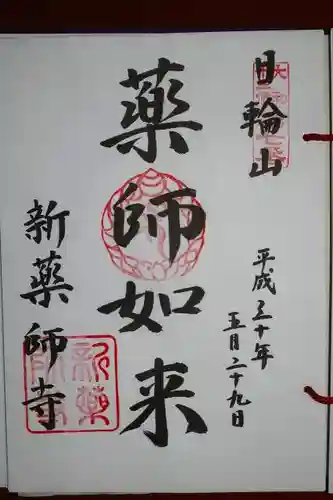 日輪山
平成三十年
五月二十九日
薬師如来
新薬師寺
新薬
師寺